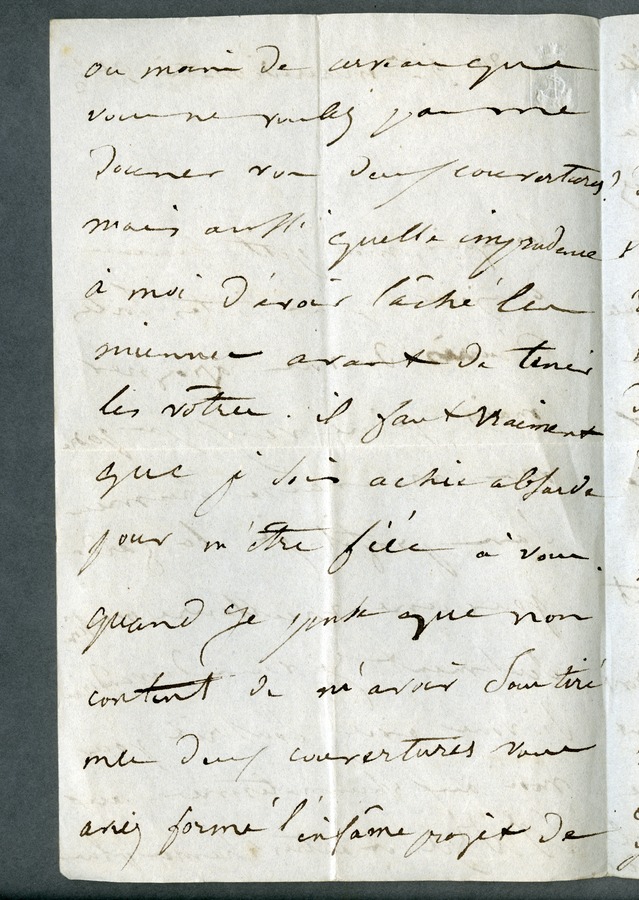 ou moins de
vous ne voulez pas me
donner vos deux couvertures?
mais aussi quelle imprudence
à moi d'avoir lâché les
miennes avant de tenir
les vôtres. il faut vraiment
que je sois absurde
pour m'être fiée à vous.
quand je pense que non
content de m'avoir soutiré
mes deux couvertures vous
aviez formé l'infâme projet de